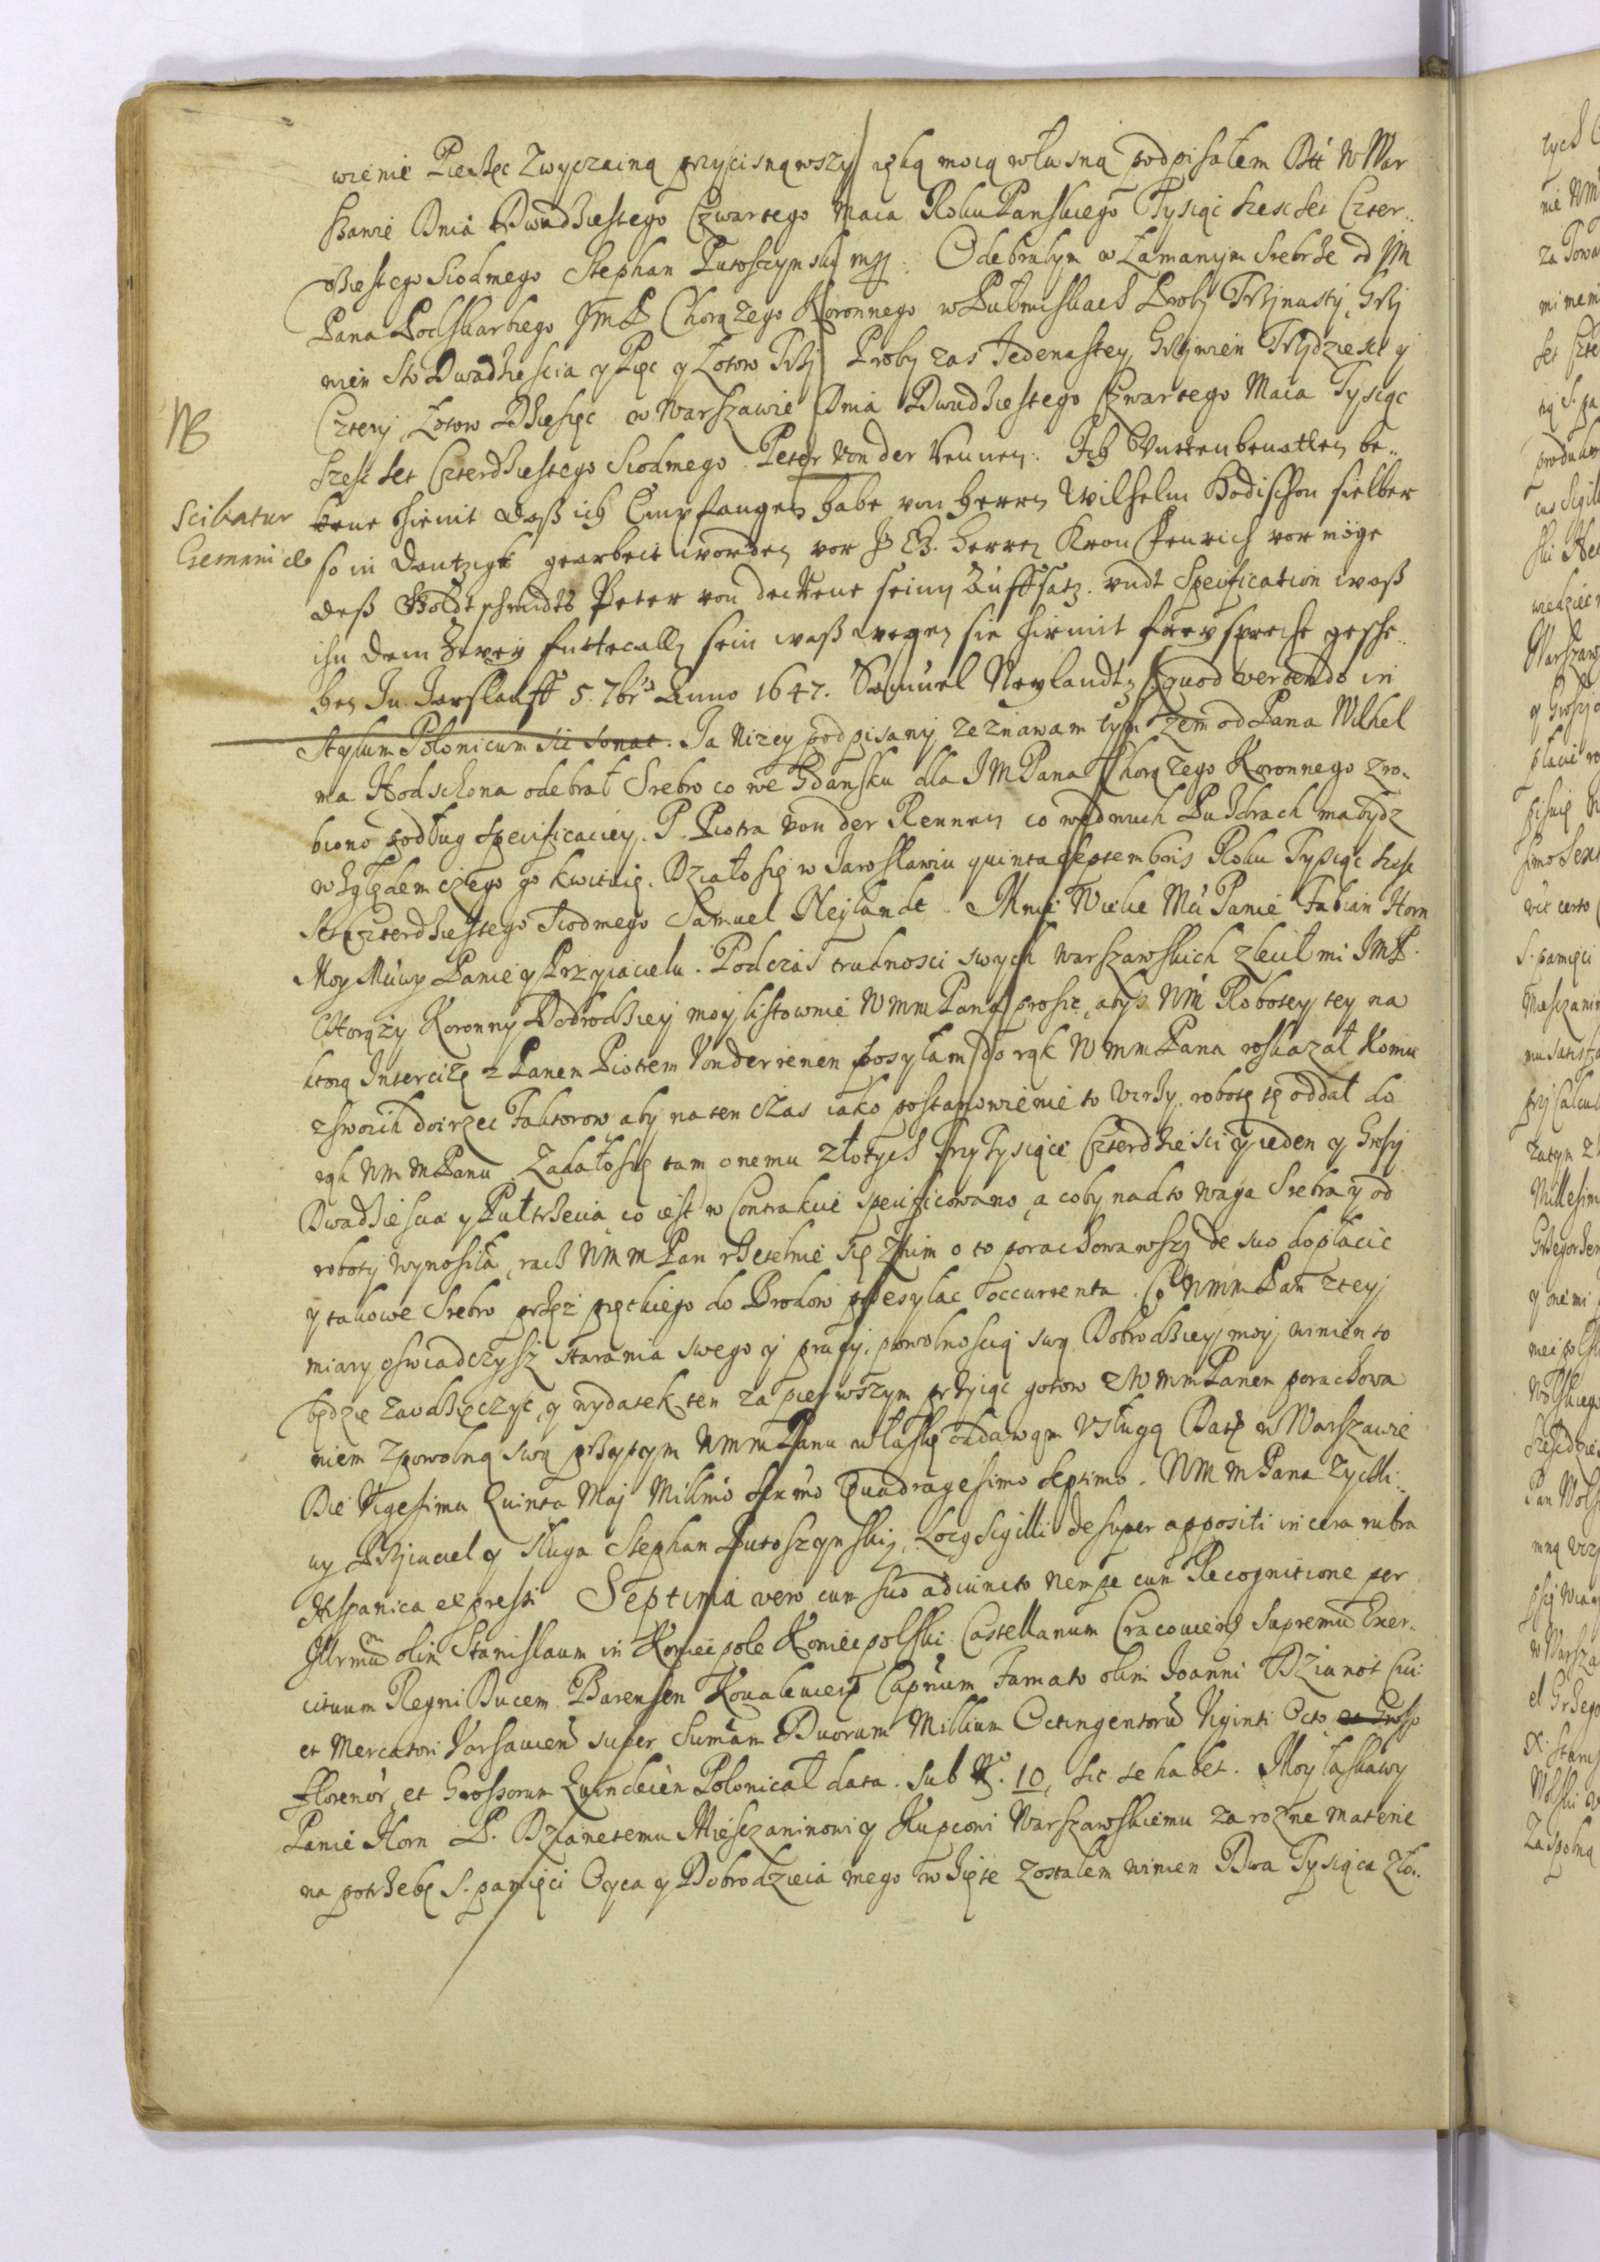 wienie Pieczęc Zwyczainą przycisnąwszy ręką moią własną podpisałem Dtt W War
szawie Dnia Dwudziestego Czwartego Maia Roku Panskiego Tysiąc szescset Czter..
dziestego Siodmego Stephan Putoszynski mpp: Odebrałym w Łamanym Srebrze od JM
Pana Podskarbiego JmP Chorązego Koronnego w Pułmiskach Proby Trzynasty, Grzy
wien Sto Dwadziescia y Pięc y Łotow Trzy Proby zas Jedenastey Grzywien Trzydziesci y
NB
Cztery, Łotow Dziesięc w Warszawie Dnia Dwudziestego Czwartego Maia Tysiąc
szescset Czterdziestego Siodmego. Peter Von der Rennen: Ich Unttenbenatten be..
Scibatur
kene hiemit daß ich Empfangen habe von Herren Wilhelm Hodischon sielber
Germanice
so in Dantzigk gearbeit worden vor Herren Kron Fenrich vor möge
deß Goldtschmidts Peter von der Rene seiny Auffsatz. undt Specification waß
ihn dem zwey futterall sein waß wegen sie hiemit frey spreche gesche..
hen In Jarslauff 5. 7bris Anno 1647. Samuel Neylandt Quod vertendo in
Stylum Polonicum sic sonat. Ja Nizey podpisany zeznawam tym zem od Pana Wilhel
ma Hodschona odebrał Srebro co we Gdansku dla JMPana Chorązego Koronnego zro..
biono podług specificaciey. P. Piotra Von der Rennen co w dwuch Pudłach ma bydz
względem czego go kwituię. Działo się w Jarosławiu quinta septembris Roku Tysiąc szesc
Set Czterdziestego Siodmego Samuel Neylandt. Mnie Wielce Mci Panie Fabian Horn
Moy Mciwy Panie y Przyiacielu. Podczas trudnosci swych Warszawskich zlecił mi JMP.
Chorązy Koronny Dobrodziey moy listownie WmmPana prosic, abys Wm Robotey tey na
ktorą Intercizę z Panem Piotrem Vonderrenen posyłam do rąk WmmPana roskazał komu
z swoich doirzec Faktorow aby na ten czas iako postanowienie to uczy. robotę tę oddał do
rąk WmmPanu Zadało się tam onemu złotych Trzy Tysiące Czterdziesci y ieden y Groszy
Dwadziescia y Pułtrzecia co iest w Contrakcie specificowano, a coby nadto waga Srebra y od
roboty wynosiła, racz WmmPan rzetelnie się z nim o to porachowawszy de suo dopłacic
y takowe Srebro przez pięckiego do Brodow przesyłac occurrenta. Co WmmPan z tey
miary oswiadczysz starania swego y pracy, powolnoscią swą Dobrodziey moy winien to
będzie zawdzięczyc, y wydatek ten za pierwszym przyiąc gotow z WmmPanem porachowa
niem z powolną swą przytym WmmPanu w łaskę oddawam Usługą Datę w Warszawie
Die Vigesima Quinta Maj Millmo sexmo Quadragesimo Septimo. WmmPana Zyczli..
wy Przyiaciel y sługa Stephan Putoszynski, Locg Sigilli desuper appositi in cera rubra
Hispanica expressi Septima vero cum suo adiuncto nempe cum Recognitione per
Illrmum olim Stanislaum in Koniecpole Koniecpolski Castellanum Cracovien Supremum Exer..
cituum Regni Ducem Barensen Kovalevien Capneum Famato olim Joanni Dzianot Civi
et Mercatori Varsavien super Sumam Duorum Millium Octingentoru Viginti Octo et Grossi
florenor, et Grossorum Quindecim Polonicał data. sub No. 10, sic se habet. Moy łaskawy
Panie Horn P. Dzianetemu Mieszczaninowi y Kupcowi Warszawskiemu za rozne materie
na potrzebę S. pamięci Oyca y Dobrodzieia mego wzięte zostałem winien Dwa Tysiąca Zło..